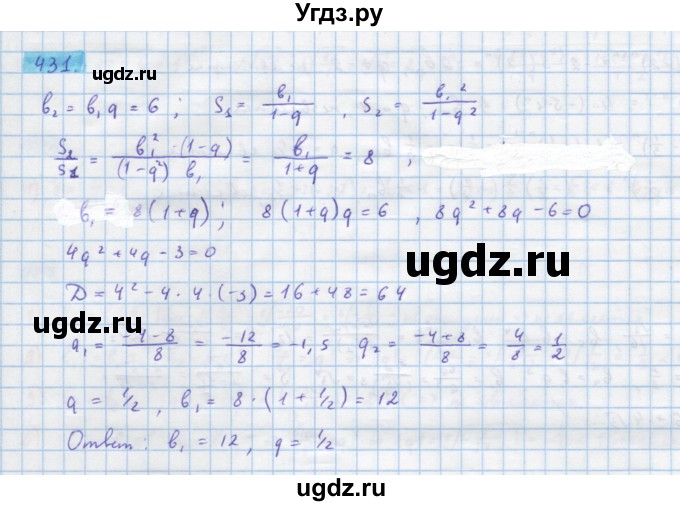 Угдз.ру
431.
ugdz.ru
b₂ = b₁q = 6 ; S₁ = b₁/(1-q) , S₂ = b₁²/(1-q²)
S₂/S₁ = b₁²·(1-q)/((1-q²) b₁) = b₁/(1+q) = 8 ,
b₁ = 8(1+q) ; 8(1+q)q = 6 , 8q²+8q-6=0
4q²+4q-3=0
ugdz.ru
D = 4²-4·4·(-3) = 16+48 = 64
ugdz.ru
q₁ = (-4-8)/8 = -12/8 = -1,5 q₂ = (-4+8)/8 = 4/8 = 1/2
q = 1/2 , b₁ = 8·(1+1/2) = 12
Ответ: b₁ = 12, q = 1/2
ugdz.ru
ugdz.ru